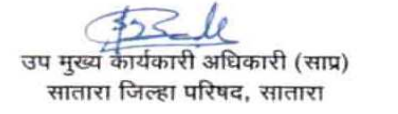 उप मुख्य कार्यकारी अधिकारी (साप्र)
सातारा जिल्हा परिषद, सातारा